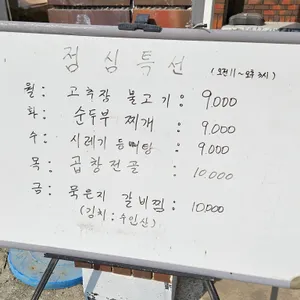 점심특선
(오전11~오후3시)
월: 고추장 불고기: 9.000
화: 순두부 찌개: 9.000
수: 시레기 등뼈탕: 9.000
목: 곱창전골: 10.000
금: 묵은지 갈비찜: 10.000
(김치: 수인산)